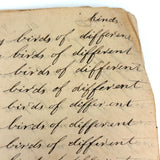 kinds
birds of different
birds of different
birds of different
birds of different
birds of different
birds of different
birds of different
birds of different